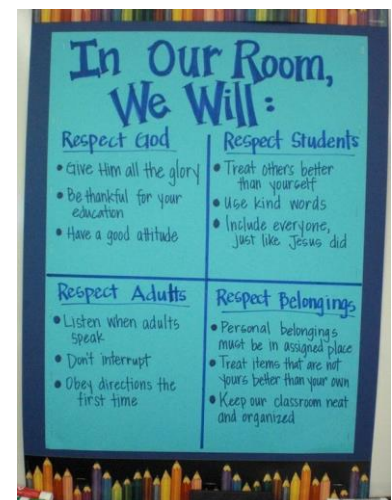 In Our Room,
We Will:
Respect God
• Give Him all the glory
• Be thankful for your
education
• Have a good attitude
Respect Students
• Treat others better
than yourself
• Use kind words
• Include everyone,
just like Jesus did
Respect Adults
• Listen when adults
speak
• Don't interrupt
• Obey directions the
first time
Respect Belongings
• Personal belongings
must be in assigned place
• Treat items that are not
yours better than your own
• Keep our classroom neat
and organized